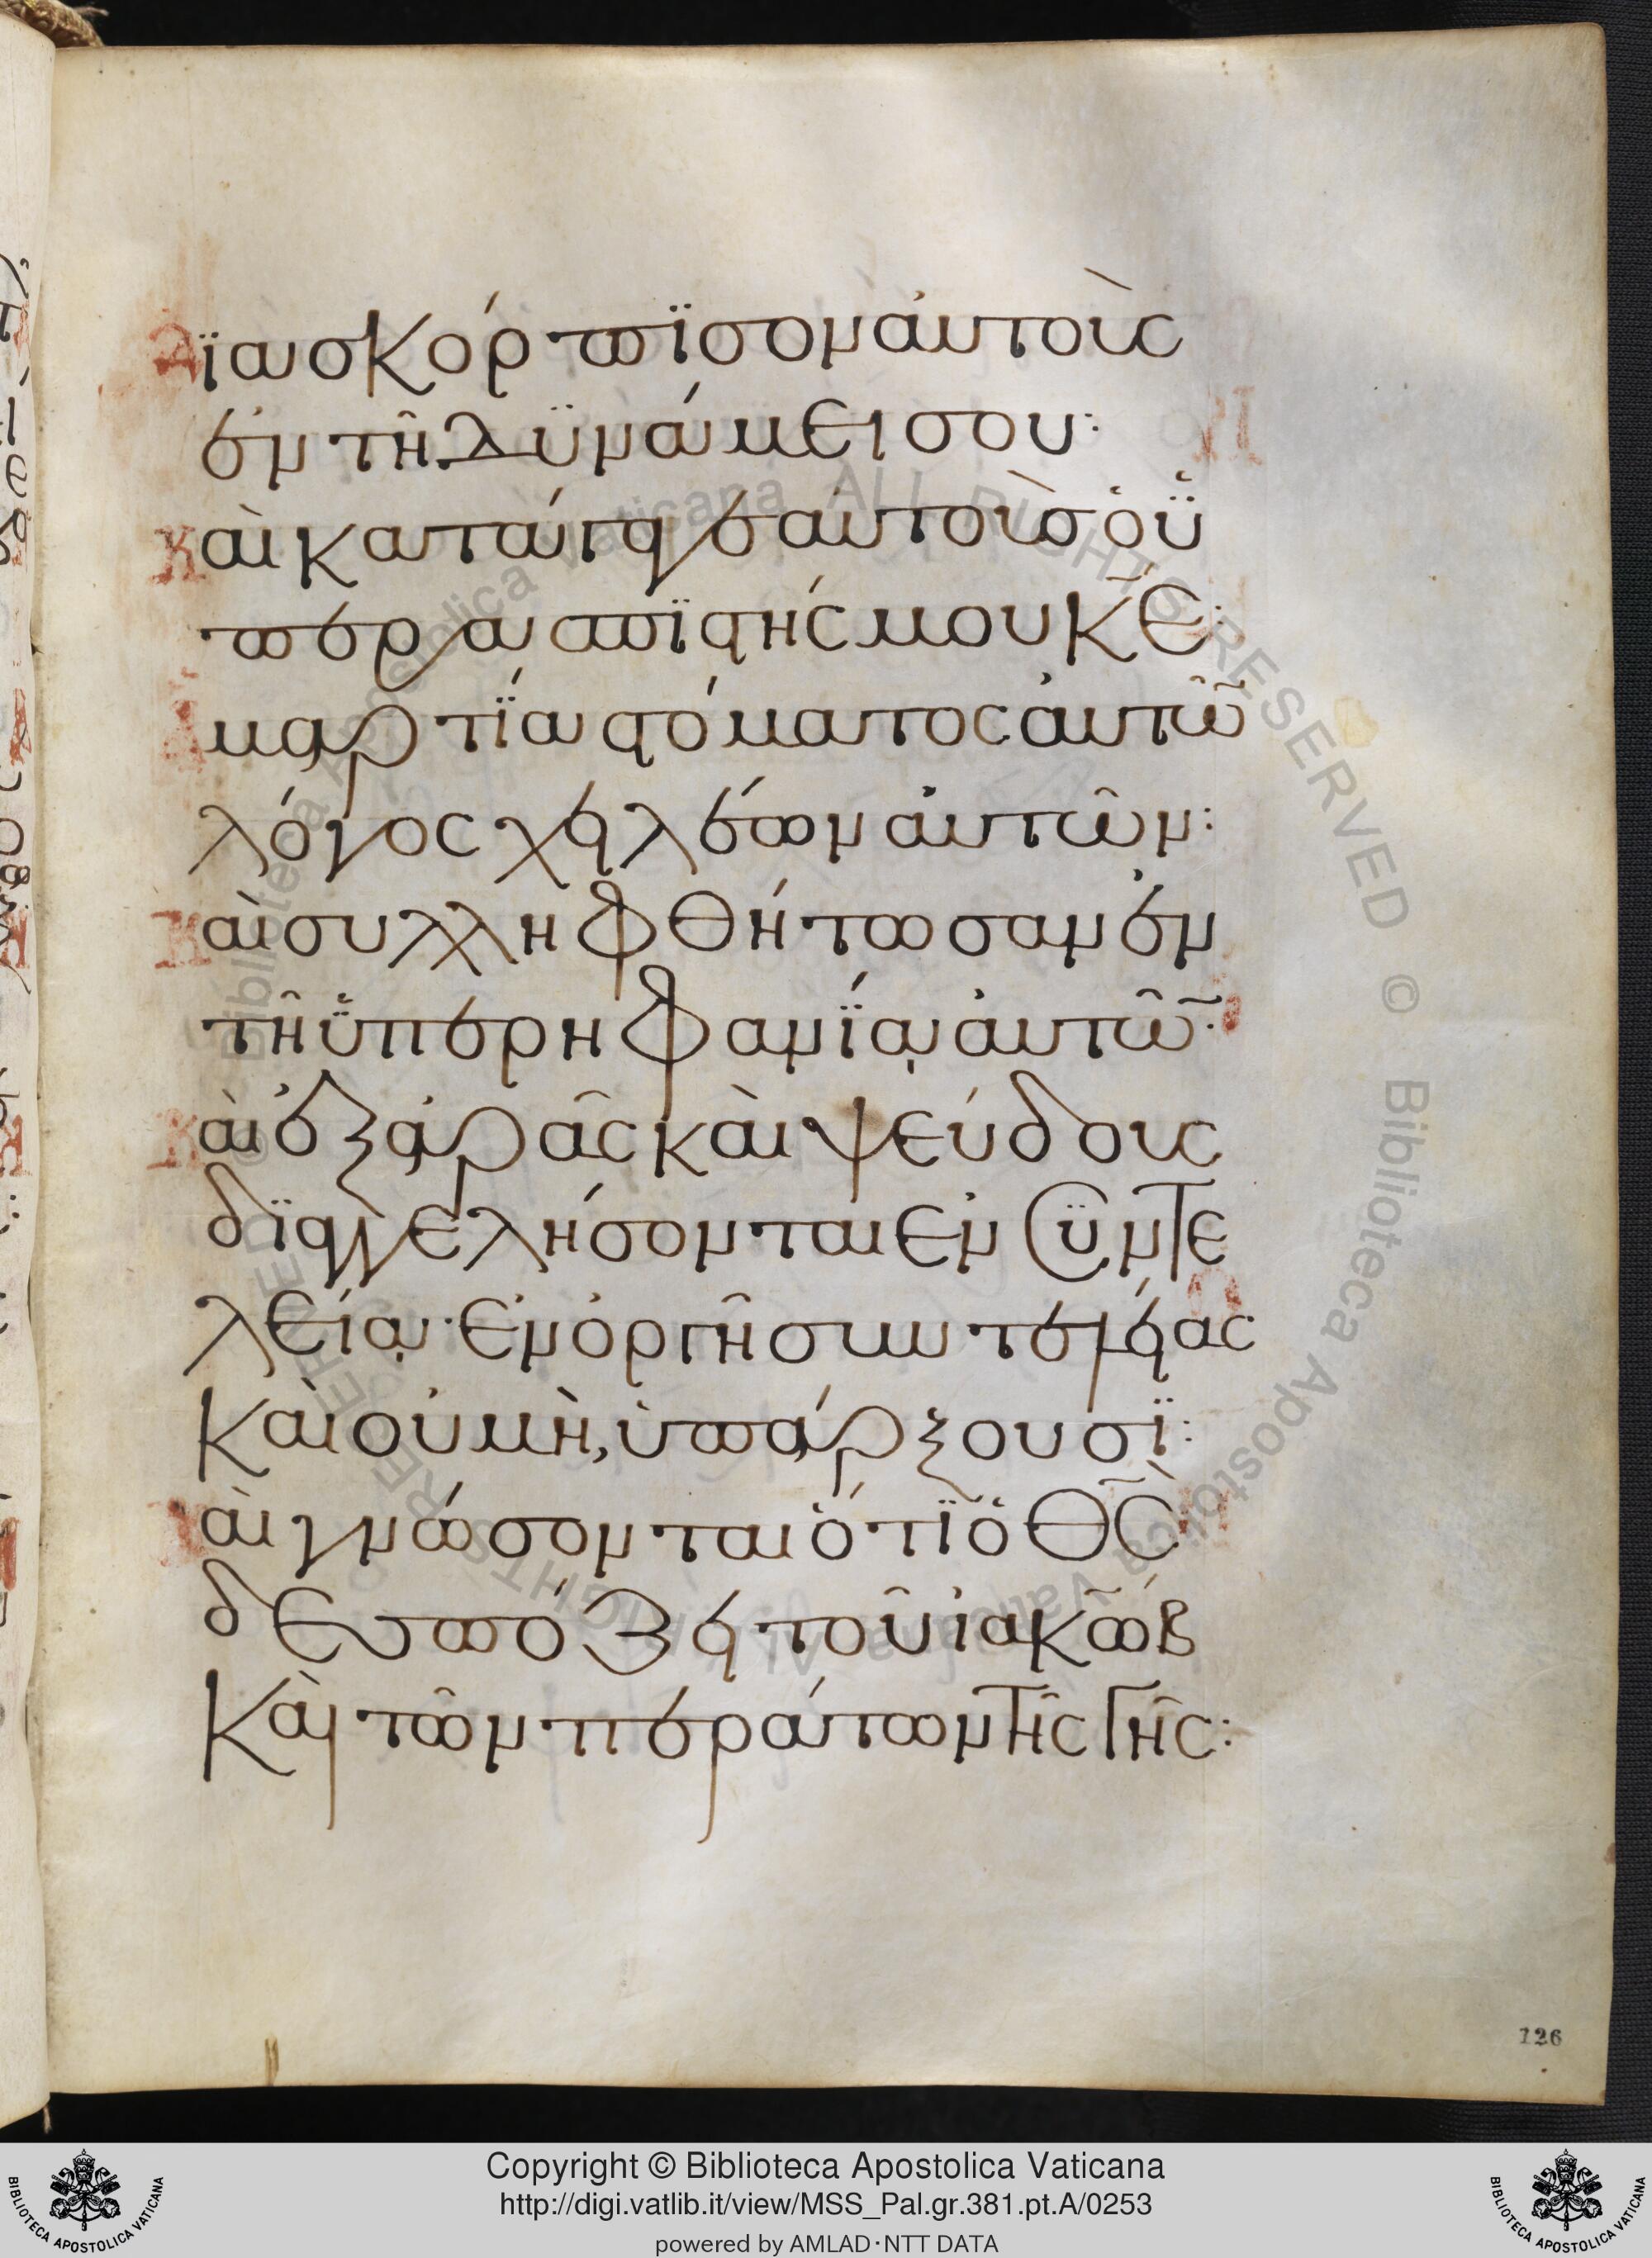 Διασκόρπϊσον ἀυτοὺς
ἐν τῆ δϋνάμει σου:
Καὶ κατάγαγε ἀυτοὺσ ὁ ὑ
περασπϊστής μου κ̅ε̅:
Ἁμαρτΐα στόματος ἀυτῶ̅
λόγος χειλέων ἀυτῶν:
Καὶ συλληφθήτωσαν ἐν
τῆ ὑπερηφανΐα ἀυτῶ̅:
Καὶ ἐξ ἀρᾶς καὶ ψεύδους
δϊαγγελήσονται ἐν σϋντε
λεία· ἐν ὀργῆ συντελείας
καὶ οὐ μὴ, ὑπάρξουσϊ:
Καὶ γνώσονται ὅτϊ ὁ θ̅ς̅
δεσπόζει τοῦ ἰακώβ
καὶ τῶν περάτων τῆς γῆς:
126
Copyright © Biblioteca Apostolica Vaticana
http://digi.vatlib.it/view/MSS_Pal.gr.381.pt.A/0253
powered by AMLAD·NTT DATA
BIBLIOTECA APOSTOLICA VATICANA
BIBLIOTECA APOSTOLICA VATICANA